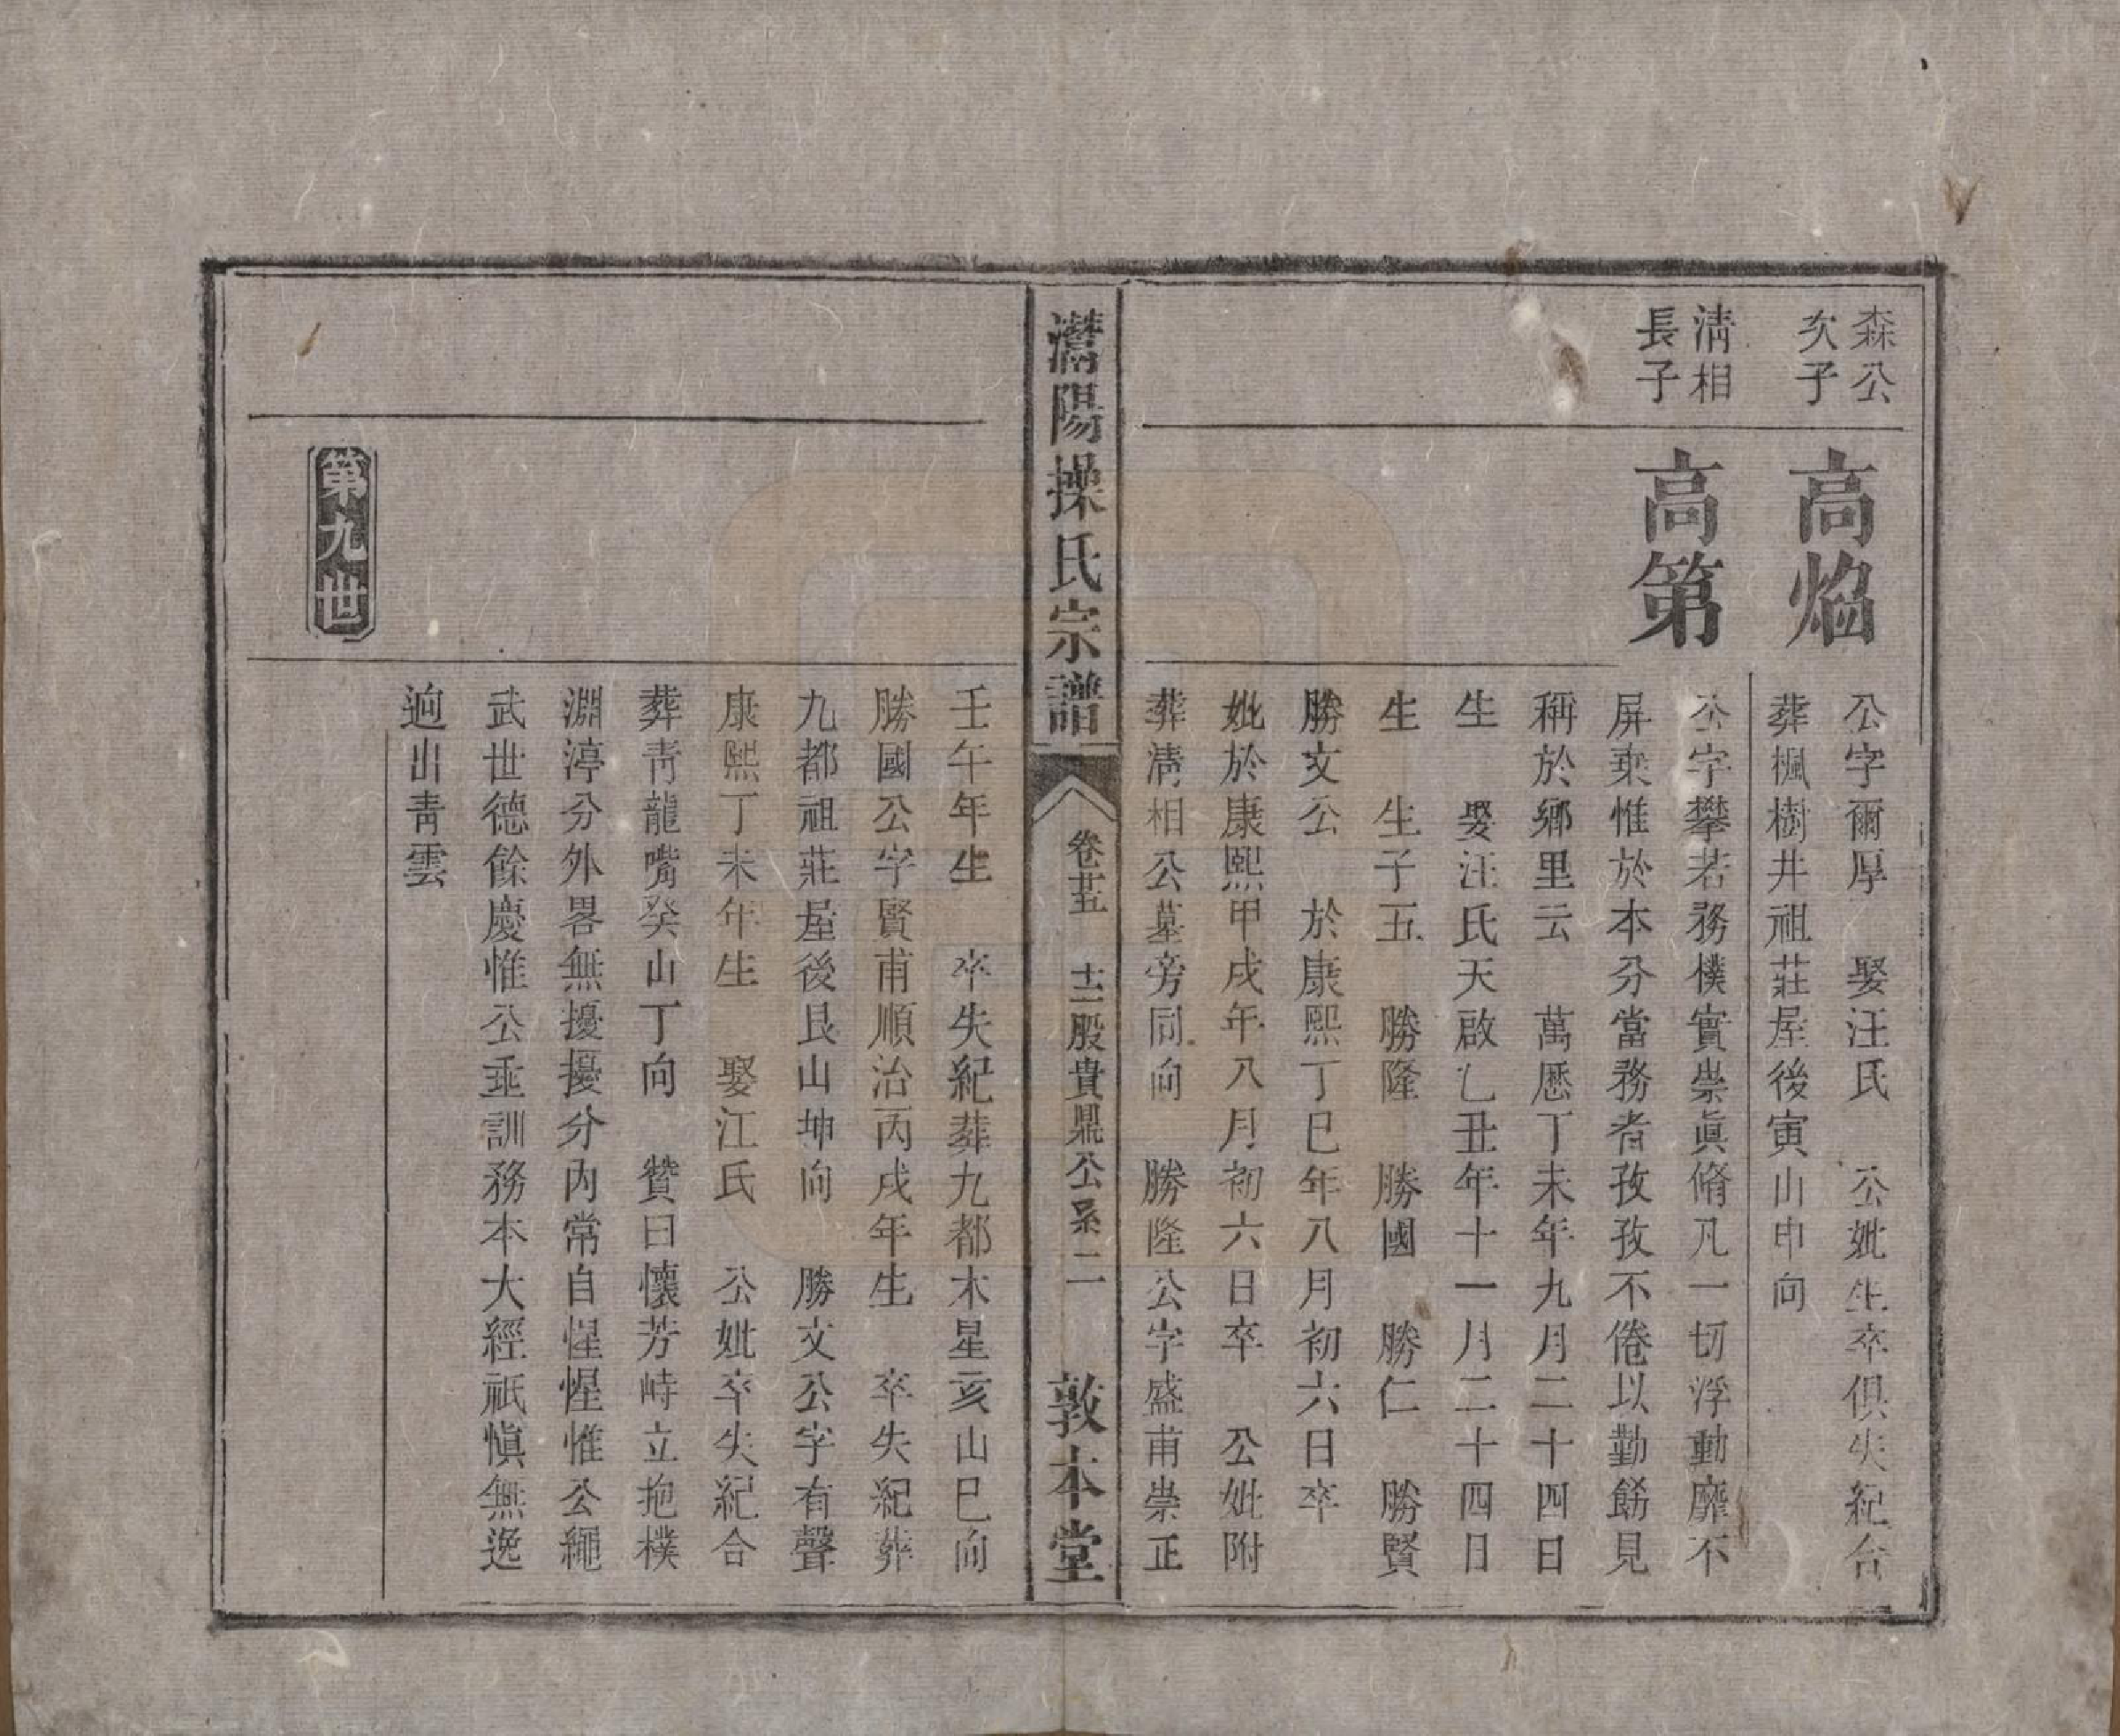 森公
次子
高焰
公字爾厚　娶汪氏　公妣生卒俱失紀合
葬楓樹井祖莊屋後寅山申向
清相
長子
高第
公字攀若務樸實崇眞脩凡一切浮動靡不
屏棄惟於本分當務者孜孜不倦以勤餝見
稱於鄉里云　萬厯丁未年九月二十四日
生　娶汪氏天啟乙丑年十一月二十四日
生　生子五　勝隆　勝國　勝仁　勝賢
勝文公　於康熙丁巳年八月初六日卒
妣於康熙甲戌年八月初六日卒　公妣附
葬清相公墓旁同向　勝隆公字盛甫崇正
灊陽操氏宗譜
卷廿五　十二股貴鼎公系二
敦本堂
壬午年生　卒失紀葬九都木星亥山巳向
勝國公字賢甫順治丙戌年生　卒失紀葬
九都祖莊屋後艮山坤向　勝文公字有聲
康熙丁未年生　娶江氏　公妣卒失紀合
葬青龍嘴癸山丁向　贊曰懷芳峙立抱樸
淵渟分外畧無擾擾分內常自惺惺惟公繩
武世德餘慶惟公垂訓務本大經祇愼無逸
逈出青雲
第九世